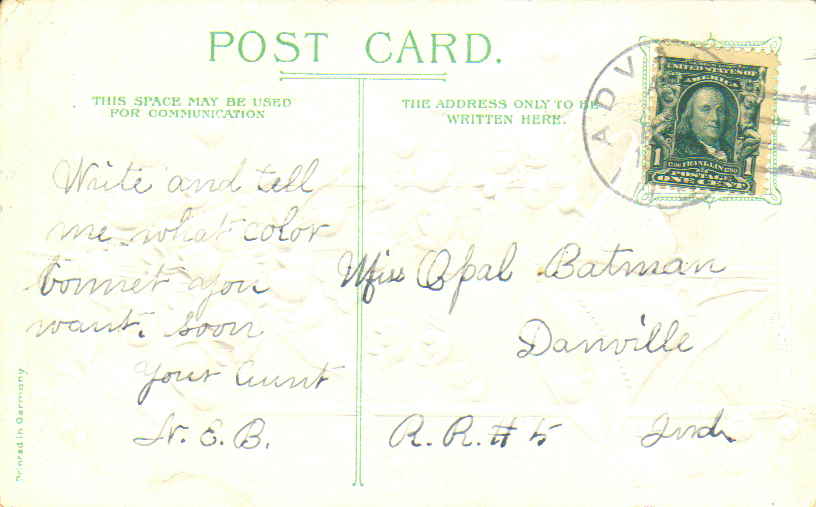 POST CARD.
THIS SPACE MAY BE USED
FOR COMMUNICATION
THE ADDRESS ONLY TO BE
WRITTEN HERE.
ADV
UNITED STATES OF
AMERICA
1706 FRANKLIN 1790
1 1
POSTAGE
ONE CENT
Write and tell
me what color
bonnet you
want. soon
your Aunt
N. E. B.
Miss Opal Batman
Danville
R. R. # 5 Ind.
Printed in Germany